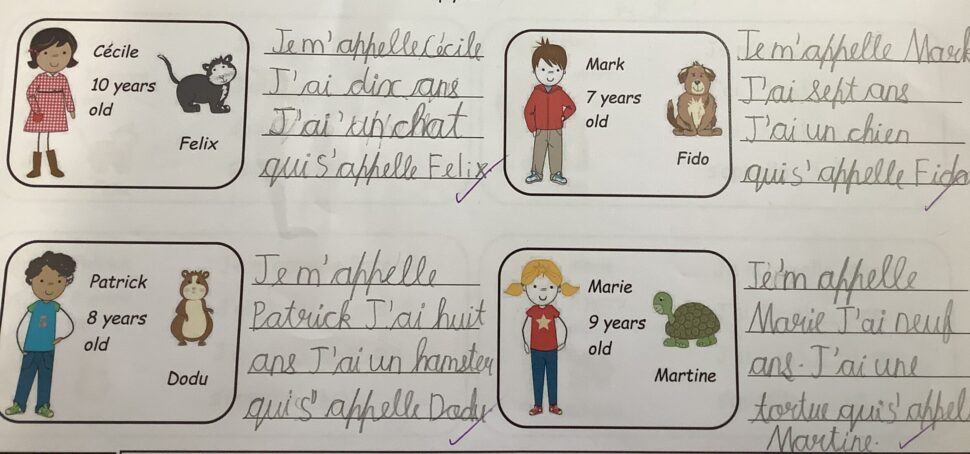 Cécile
10 years
old
Felix
Je m'appelle Cécile
J'ai dix ans
J'ai un chat
qui s'appelle Felix
Mark
7 years
old
Fido
Je m'appelle Mark
J'ai sept ans
J'ai un chien
qui s'appelle Fido
Patrick
8 years
old
Dodu
Je m'appelle
Patrick J'ai huit
ans J'ai un hamster
qui s'' appelle Dodu
Marie
9 years
old
Martine
Je'm appelle
Marie J'ai neuf
ans. J'ai une
tortue qui s'appel
Martine.